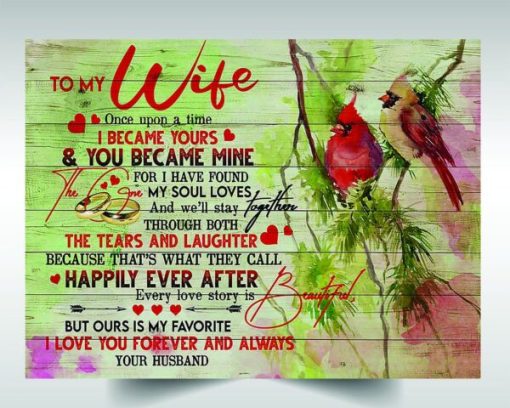 TO MY Wife
Once upon a time
I BECAME YOURS
& YOU BECAME MINE
FOR I HAVE FOUND
The One MY SOUL LOVES
And we'll stay together
THROUGH BOTH
THE TEARS AND LAUGHTER
BECAUSE THAT'S WHAT THEY CALL
HAPPILY EVER AFTER
Every love story is Beautiful,
BUT OURS IS MY FAVORITE
I LOVE YOU FOREVER AND ALWAYS
YOUR HUSBAND